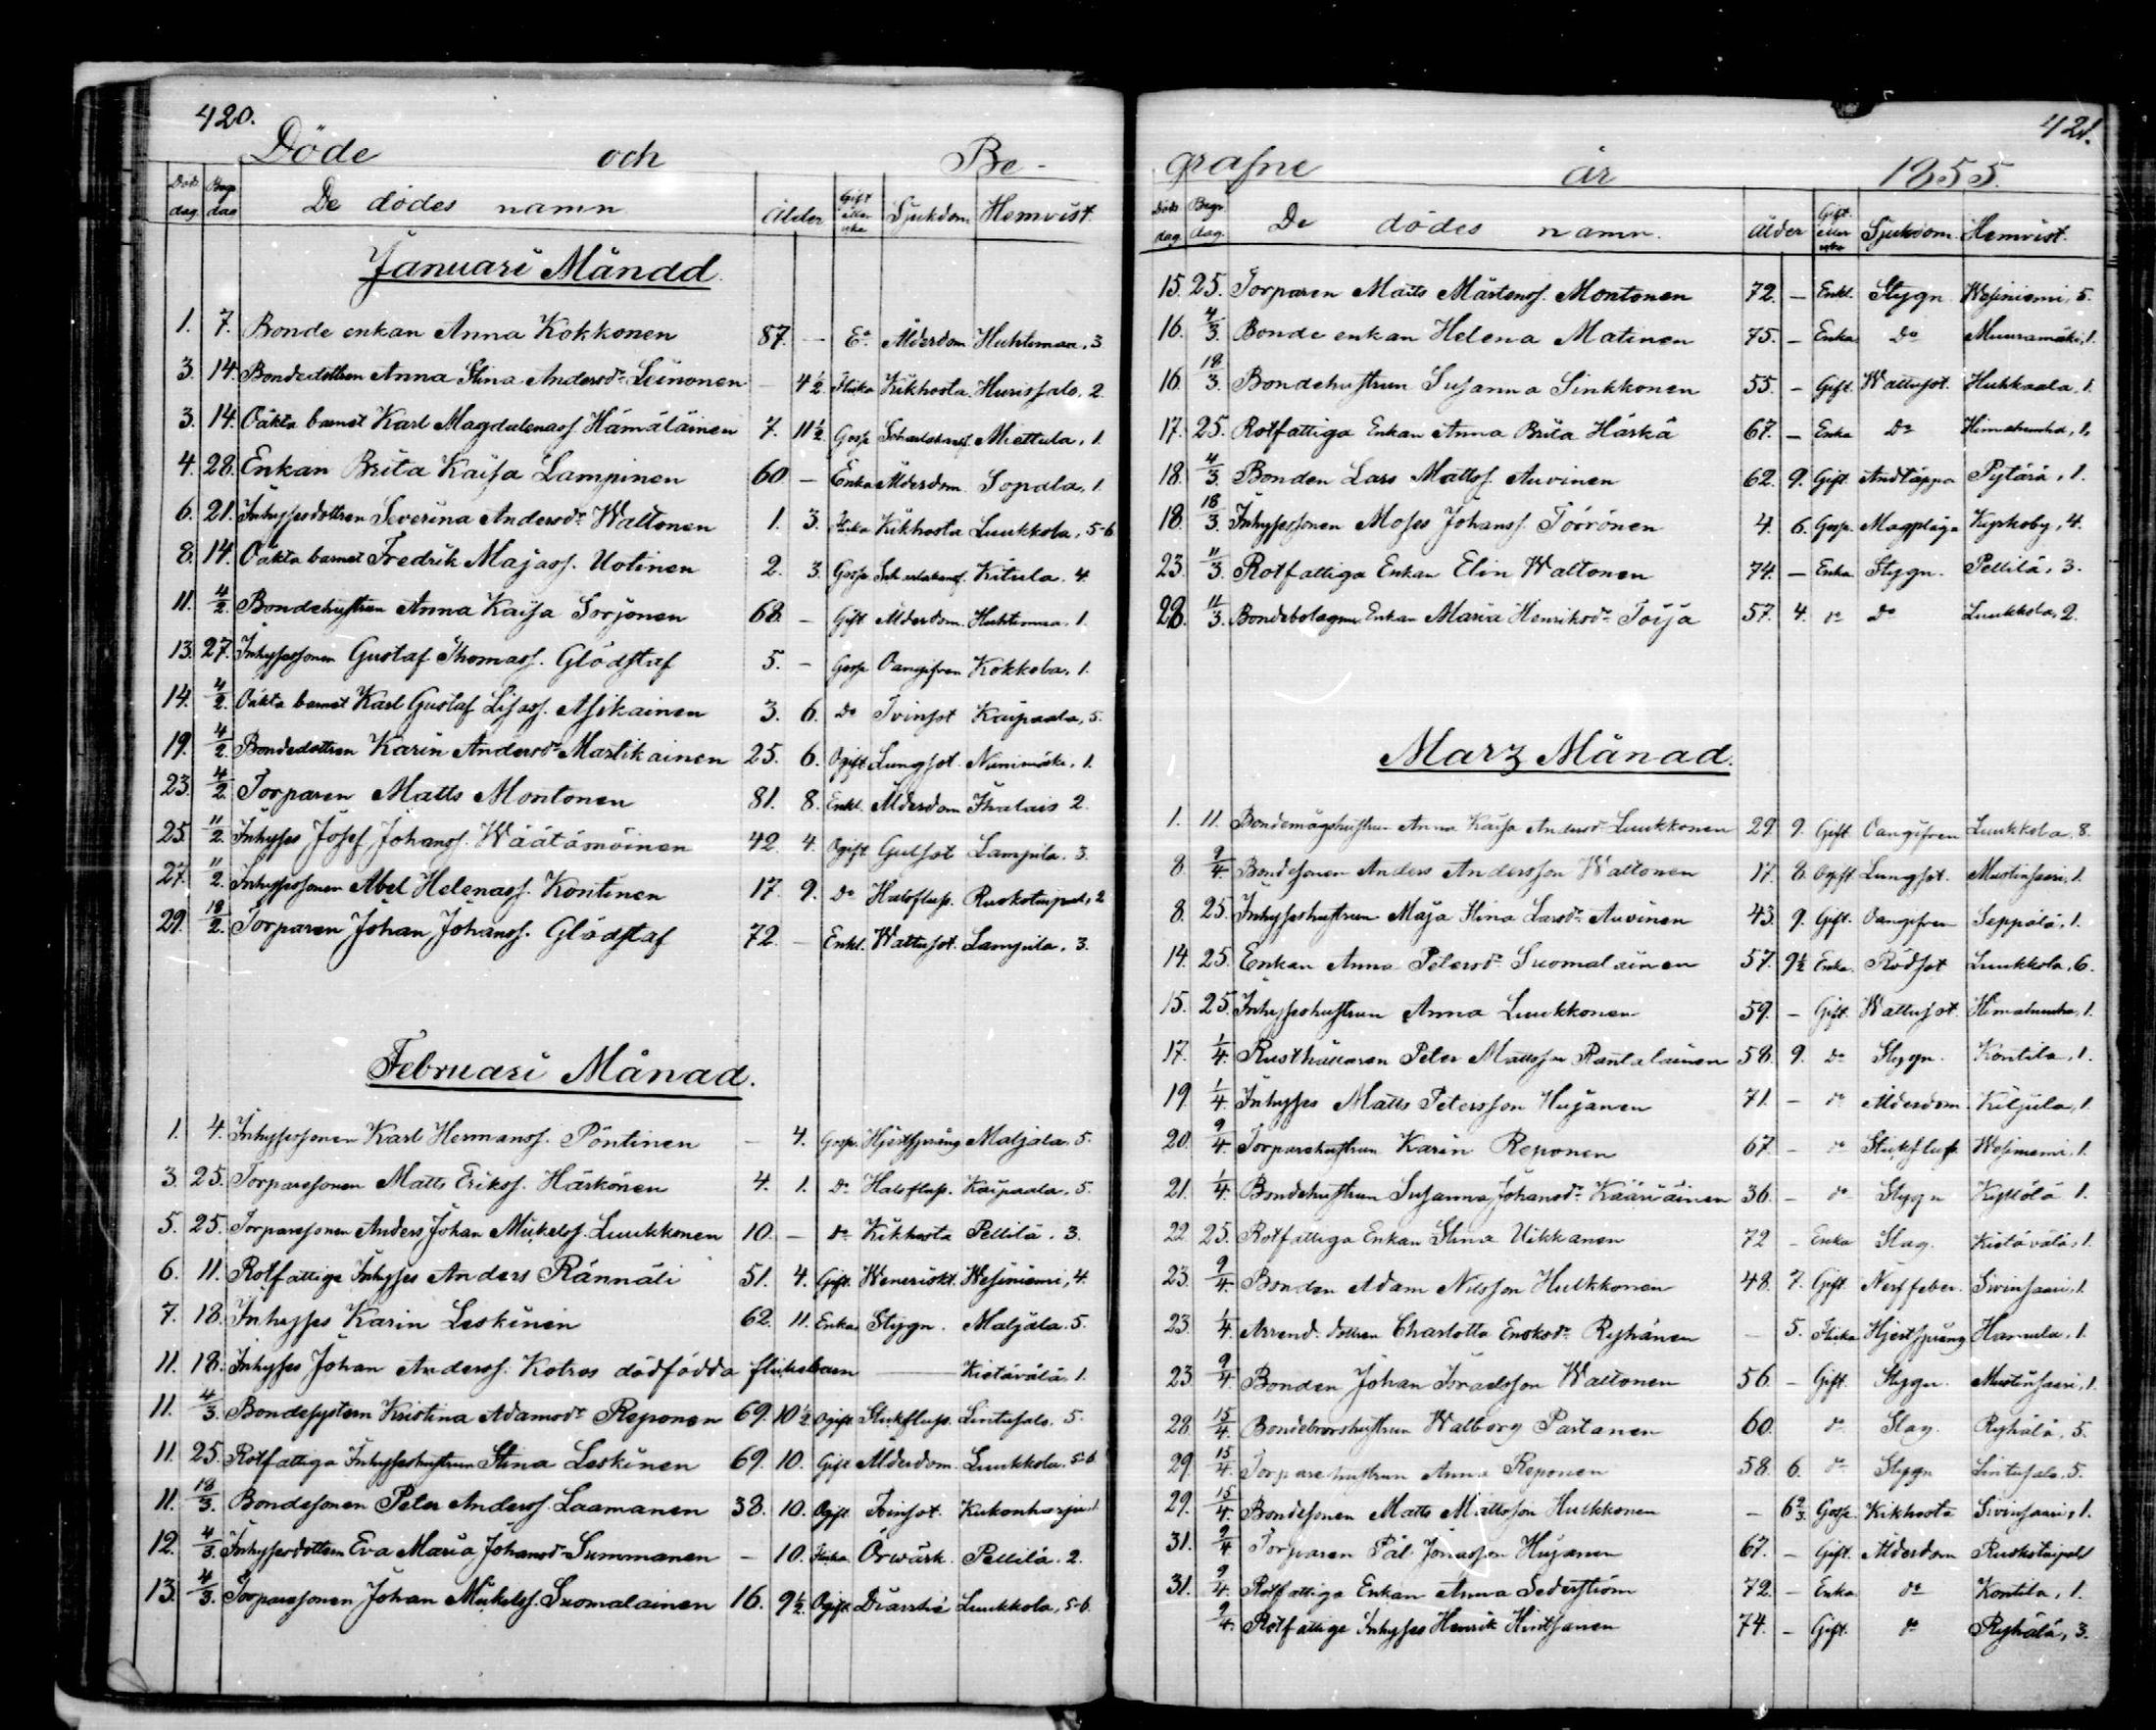 420.
Döde och Be-
Döds dag. Begr. dag De dödes namn. Ålder Gift eller icke Sjukdom Hemvist.
Januari Månad.
1. 7. Bonde enkan Anna Kokkonen 87. — Ea. Ålderdom Huhtimaa, 3
3. 14. Bondedottren Anna Stina Andersdr Leinonen — 4½ Flicka Kikhosta Hurissalo, 2.
3. 14. Oäkta barnet Karl Magdalenass. Hämäläinen 7. 11½. Gosse Miettula, 1.
4. 28. Enkan Brita Kaisa Lampinen 60. — Enka Ålderdom. Sopala, 1.
6. 21. Inhysesdottren Severina Andersdr Waltonen 1. 3. Flicka Kikhosta Luukkola, 5-6
8. 14. Oäkta barnet Fredrik Majass. Uotinen 2. 3. Gosse Kitula. 4.
11. 4/2. Bondehustrun Anna Kaisa Sorjonen 68. — Gift Ålderdom. Huhtimaa. 1.
13. 27. Inhysessonen Gustaf Thomass. Glödstaf 5. — Gosse Oangifven Kokkola, 1.
14. 4/2. Oäkta barnet Karl Gustaf Lisass. Asikainen 3. 6. Do Tvinsot Kaipaala, 5.
19. 4/2. Bondedottren Karin Andersdr Martikainen 25. 6. Ogift Lungsot. 1.
23. 4/2. Torparen Matts Montonen 81. 8. Enkl. Ålderdom Ihalais 2.
25. 11/2. Inhyses Josef Johanss. Wäätämöinen 42. 4. Ogift Gulsot Lampila. 3.
27. 11/2. Inhysessonen Abel Helenass. Kontinen 17. 9. Do Halsfluss. 2
29. 18/2. Torparen Johan Johanss. Glödstaf 72. — Enkl. Wattusot. Lampila, 3.
Februari Månad.
1. 4. Inhysessonen Karl Hermanss. Pöntinen — 4. Gosse Hjertsprång Maljala, 5.
3. 25. Torparesonen Matts Erikss. Härkönen 4. 1. Do Halsfluss. Kaipaala, 5.
5. 25. Torparesonen Anders Johan Mickelss. Luukkonen 10. — do Kikhosta Pellilä. 3.
6. 11. Rotfattige Inhyses Anders Rännäli 51. 4. Gift. Weneriskt. Wesiniemi, 4.
7. 18. Inhyses Karin Leskinen 62. 11. Enka Stygn. Maljala. 5.
11. 18. Inhyses Johan Anderss. Kotros dödfödda flickobarn — Kietävälä, 1.
11. 4/3. Bondesystern Kristina Adamsdr Reponen 69. 10½ Ogift Slukfluss. Lintusalo. 5.
11. 25. Rotfattiga Inhyseshustrun Stina Leskinen 69. 10. Gift Ålderdom. Luukkola. 5-6
11. 18/3. Bondesonen Peter Anderss. Laamanen 38. 10. Ogift. Tvinsot. Kukonharju. 1
12. 4/3. Inhysesdottren Eva Maria Johansdr Summanen — 10. Flicka Örwärk. Pellilä. 2.
13. 4/3. Torparesonen Johan Mickelss. Suomalainen 16. 9½. Ogift Diarrhé Luukkola, 5-6.
421.
grafne år 1855.
Döds dag. Begr. dag. De dödes namn. Ålder Gift. eller icke Sjukdom. Hemvist.
15. 25. Torparen Matts Mårtenss. Montonen 72. — Enkl. Stygn Wesiniemi, 5.
16. 4/3. Bonde enkan Helena Matinen 75. — Enka Do Muuramäki, 1.
16. 18/3. Bondehustrun Susanna Sinkkonen 55. — Gift. Wattusot. Hukkaala, 1.
17. 25. Rotfattiga Enkan Anna Brita Härkä 67. — Enka Do Himahuuha, 1.
18. 4/3. Bonden Lars Mattss. Auvinen 62. 9. Gift. Andtäppa Pytärä, 1.
18. 18/3. Inhysessonen Moses Johanss. Törrönen 4. 6. Gosse. Magplåga Kyrkoby, 4.
23. 11/3. Rotfattiga Enkan Elin Waltonen 74. — Enka Stygn. Pellilä, 3.
28. 11/3. Bondebolagns Enkan Maria Henriksdr Toija 57. 4. do Do Luukkola, 2.
Marz Månad.
1. 11. Bondemågshustrun Anna Kaisa Andersdr Luukkonen 29. 9. Gift. Oangifven Luukkola, 8.
8. 9/4. Bondesonen Anders Andersson Waltonen 17. 8. Ogift Lungsot. Mustinsaari, 1.
8. 25. Inhyseshustrun Maja Stina Larsdr Auvinen 43. 9. Gift. Oangifven Seppälä, 1.
14. 25. Enkan Anna Petersdr Suomalainen 57. 9½ Enka. Rödsot Luukkola, 6.
15. 25. Inhyseshustrun Anna Luukkonen 59. — Gift. Wattusot. Himahuuha, 1.
17. 1/4. Rusthållaren Peter Mattsson Rantalainen 58. 9. do Stygn. Kontila, 1.
19. 1/4. Inhyses Matts Petersson Hujanen 71. — do Ålderdom. Kiljula, 1.
20. 9/4. Torparehustrun Karin Reponen 67. — do Slukfluss. Wesiniemi, 1.
21. 1/4. Bondehustrun Susanna Johansdr Kääriäinen 36. — do Stygn 1.
22. 25. Rotfattiga Enkan Stina Uikkanen 72 — Enka Slag. Kietävälä, 1.
23. 9/4. Bonden Adam Nilsson Hulkkonen 48. 7. Gift. Nerffeber. 1.
23. 1/4. Arrend. dottren Charlotta Enoksdr Ryhänen — 5. Flicka Hjertsprång Hamula, 1.
23. 9/4. Bonden Johan Israelsson Waltonen 56. — Gift. Stygn. Mustinsaari, 1.
28. 15/4. Bondebrorshustrun Walborg Partanen 60. do Slag. Ryhälä, 5.
29. 15/4. Torparehustrun Anna Reponen 58. 6. do Stygn Lintusalo, 5.
29. 15/4. Bondesonen Matts Mattsson Hulkkonen — 6⅔ Gosse. Kikhosta 1.
31. 9/4. Torparen Pål Jonasson Hujanen 67. — Gift. Ålderdom
31. 9/4. Rotfattiga Enkan Anna Sederström 72. — Enka do Kontila, 1.
9/4. Rotfattige Inhyses Henrik Hintsanen 74. — Gift. do Ryhälä, 3.